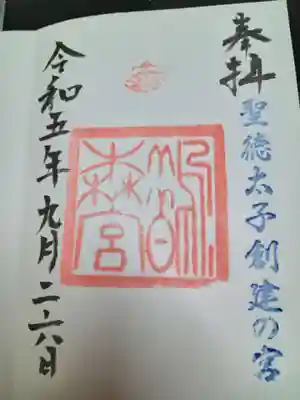 奉拝
聖徳太子創建の宮
鵲
森宮
令和五年九月二十六日